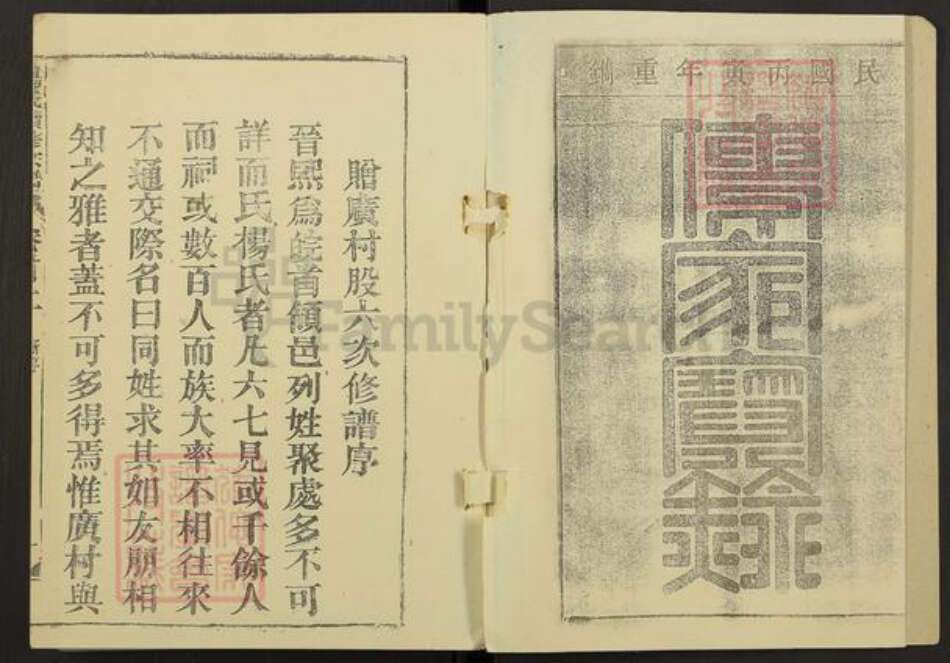 民國丙寅年重鐫
傳家寶錄
贈廣村股六次修譜序
晉熙爲皖首領邑列姓聚處多不可
詳而氏楊氏者凡六七見或千餘人
而祠或數百人而族大率不相往來
不通交際名曰同姓求其如友朋相
知之雅者蓋不可多得焉惟廣村與
FamilySearch